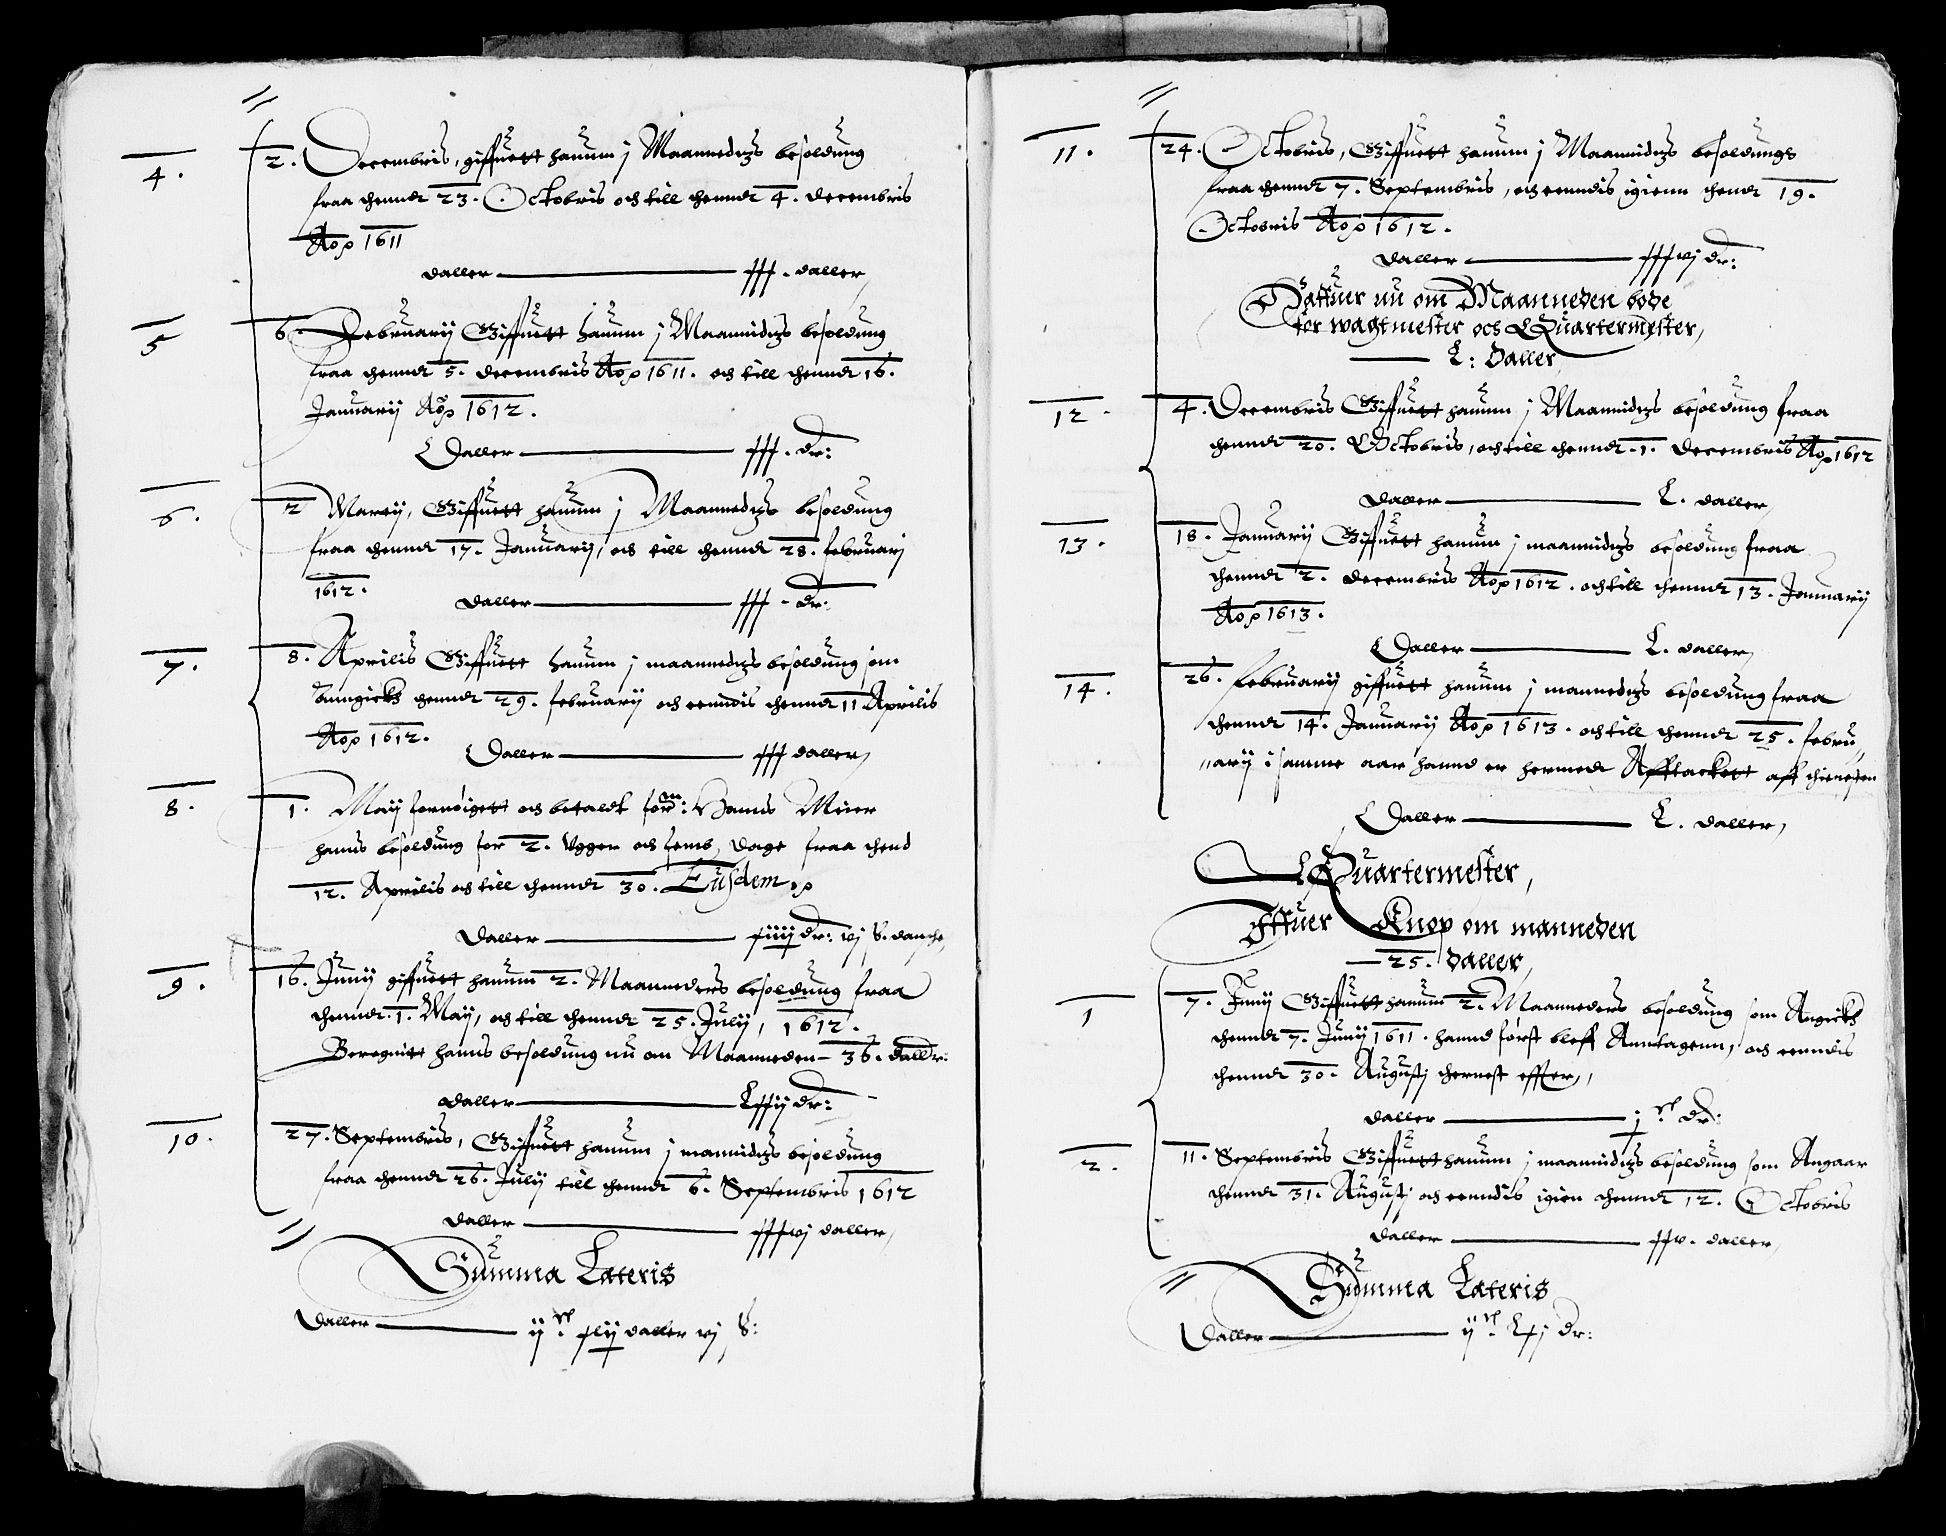 4. 2. Decembris, giffuett hanum j Maannedtzs besoldung
fraa thenndt 23. Octobris och till thenndt 4. Decembris
Ao 1611
Daller — xxx. daller
5 6. Februarij Giffuett hanum j Maannidtzs besoldung
fraa thenndt 5. Decembris Ao 1611. och till thenndt 16.
Januarij Ao 1612.
Daller — xxx. dr:
6. 2 Martij, Giffuett hanum j Maannedtzs besoldung
fraa thenndt 17. Januarij, och till thenndt 28. februarij
1612.
Daller — xxx - dr:
7. 8. Aprilis Giffuett hanum j maannedtzs besoldung som
thenndt 29. februarij och enndis thenndt 11 Aprilis
Ao 1612.
Daller — xxx daller
8. 1. Maij fornøigett och betaldt forn: Hanns Meier
hanns besoldung for 2. Ugger och femb dage fraa thend
12. Aprilis och till thenndt 30. Eusdem
Daller — xiiij dr: vj S. danske
9. 16. Junij giffuett hanum 2. Maanneders besoldung fraa
thenndt 1. Maij, och till thenndt 25. Julij, 1612.
Beregnitt hanns besoldung nu om Maanneden — 36. dallr:
Daller — Lxxij dr:
10. 27. Septembris, Giffuett hanum j mannidtzs besoldung
fraa thenndt 26. Julij till thenndt 6. Septembris 1612
Daller — xxxvj daller
Summa Lateris
Daller — ijc. xlij daller vj S:
11. 24. Octobris, Giffuett hanum j Maannidtzs besoldungs
fraa thenndt 7. Septembris, och enndis igienn thendt 19.
Octobris Ao 1612.
Daller — xxxvj dr:
Haffuer nu om Maanneden bode
for wagtmester och Quartermester,
— L: Daller
12 4. Decembris Giffuett hanum j Maannidtzs besoldung fraa
thenndt 20. Octobris, och till thenndt 1. Decembris Ao 1612
Daller — L. daller
13. 18. Januarij Giffuett hanum j maannidtzs besoldung fraa
thenndt 2. Decembris Ao 1612. och till thenndt 13. Januarij
Ao 1613.
Daller — L. daller
14. 26. februarij giffuett hanum j mannedtzs besoldung fraa
thenndt 14. Januarij Ao 1613. och till thenndt 25. febru
arij i samme aar hannd er hermedt Afftackett aff thienesten
Daller — L. daller
Quartermester,
Iffuer Knop om manneden
— 25. Daller
1 7. Junij Giffuett hanum 2. Maanneders besoldung som Angicks
thenndt 7. Junij 1611. hannd først bleff Anntagenn, och enndis
thenndt 30. Augustj thernest effter,
Daller — jc. dr:
2. 11. Septembris Giffuett hanum j maannidtzs besoldung som Angaar
thenndt 31. Augustj och enndis igien thenndt 12. Octobris
Daller — xxv. daller
Summa Lateris
Daller — ijc. Lxj dr: